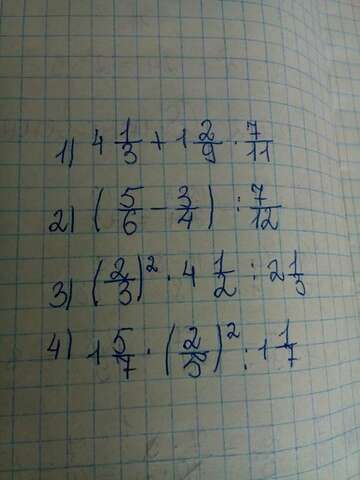 1) 4 1/3 + 1 2/9 · 7/11
2) (5/6 - 3/4) : 7/12
3) (2/3)² · 4 1/2 : 2 1/3
4) 1 5/7 · (2/3)² : 1 1/7